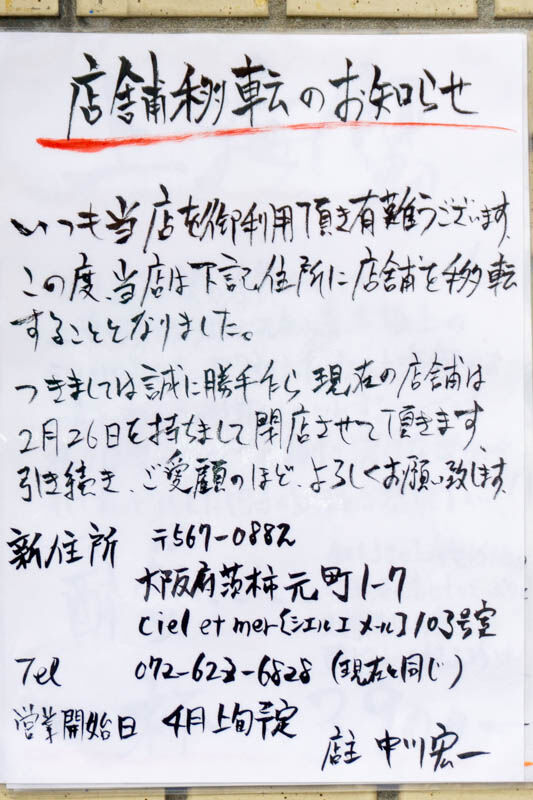 店舗移転のお知らせ
いつも当店を御利用頂き有難うございます。
この度、当店は下記住所に店舗を移転
することとなりました。
つきましては誠に勝手乍ら現在の店舗は
2月26日を持ちまして閉店させて頂きます
引き続き、ご愛顧のほど、よろしくお願い致します。
新住所 〒567-0882
大阪府茨木市元町1-7
ciel et mer〔シエル エ メール〕103号室
Tel 072-623-6828 (現在と同じ)
営業開始日 4月上旬予定
店主 中川宏一